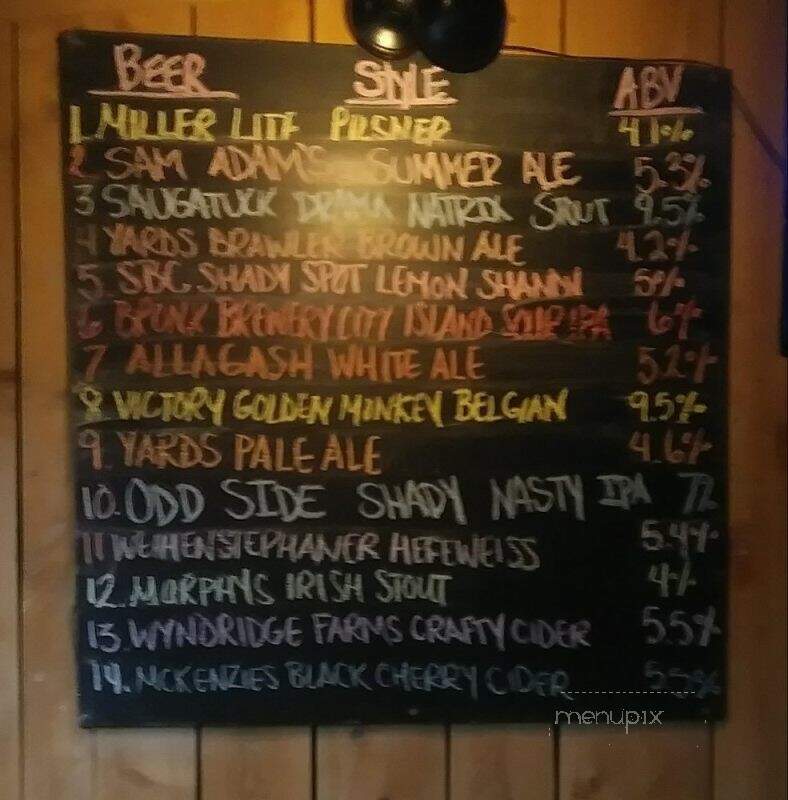 BEER STYLE ABV
1. MILLER LITE PILSNER 4.1%
2 SAM ADAM'S SUMMER ALE 5.3%
3 SAUGATUCK DRAMA NATRIX STOUT 9.5%
4 YARDS BRAWLER BROWN ALE 4.2%
5 SBC SHADY SPOT LEMON SHANDY 5%
6 BRONX BREWERY CITY ISLAND SOUR IPA 6%
7 ALLAGASH WHITE ALE 5.2%
8 VICTORY GOLDEN MONKEY BELGIAN 9.5%
9. YARDS PALE ALE 4.6%
10. ODD SIDE SHADY NASTY IPA 72
11 WEIHENSTEPHANER HEFEWEISS 5.4%
12. MURPHYS IRISH STOUT 4%
13. WYNDRIDGE FARMS CRAFTY CIDER 5.5%
14. MCKENZIES BLACK CHERRY CIDER 5.5%
menupix